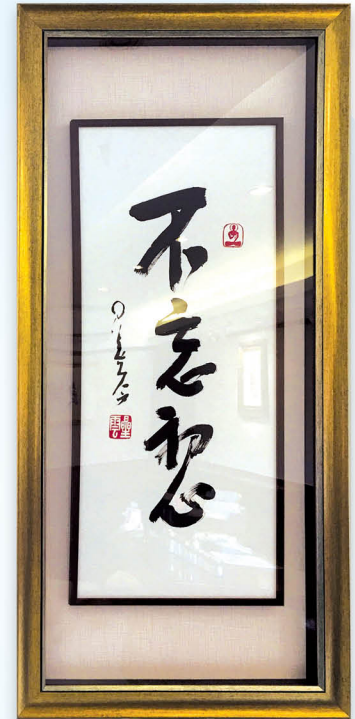 不忘初心
星雲